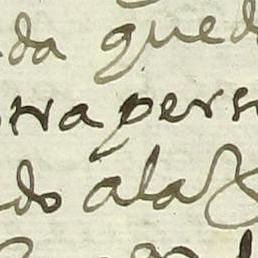 da qued
otra perso
do ala